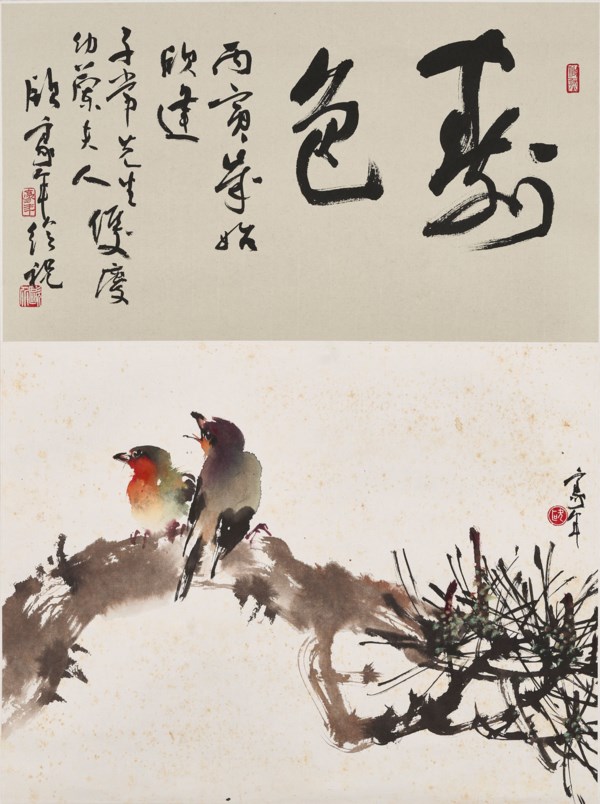 壽色
丙寅歲始
欣逢
子常先生雙慶
幼蘭夫人
歐豪年繪祝
豪年
豪年